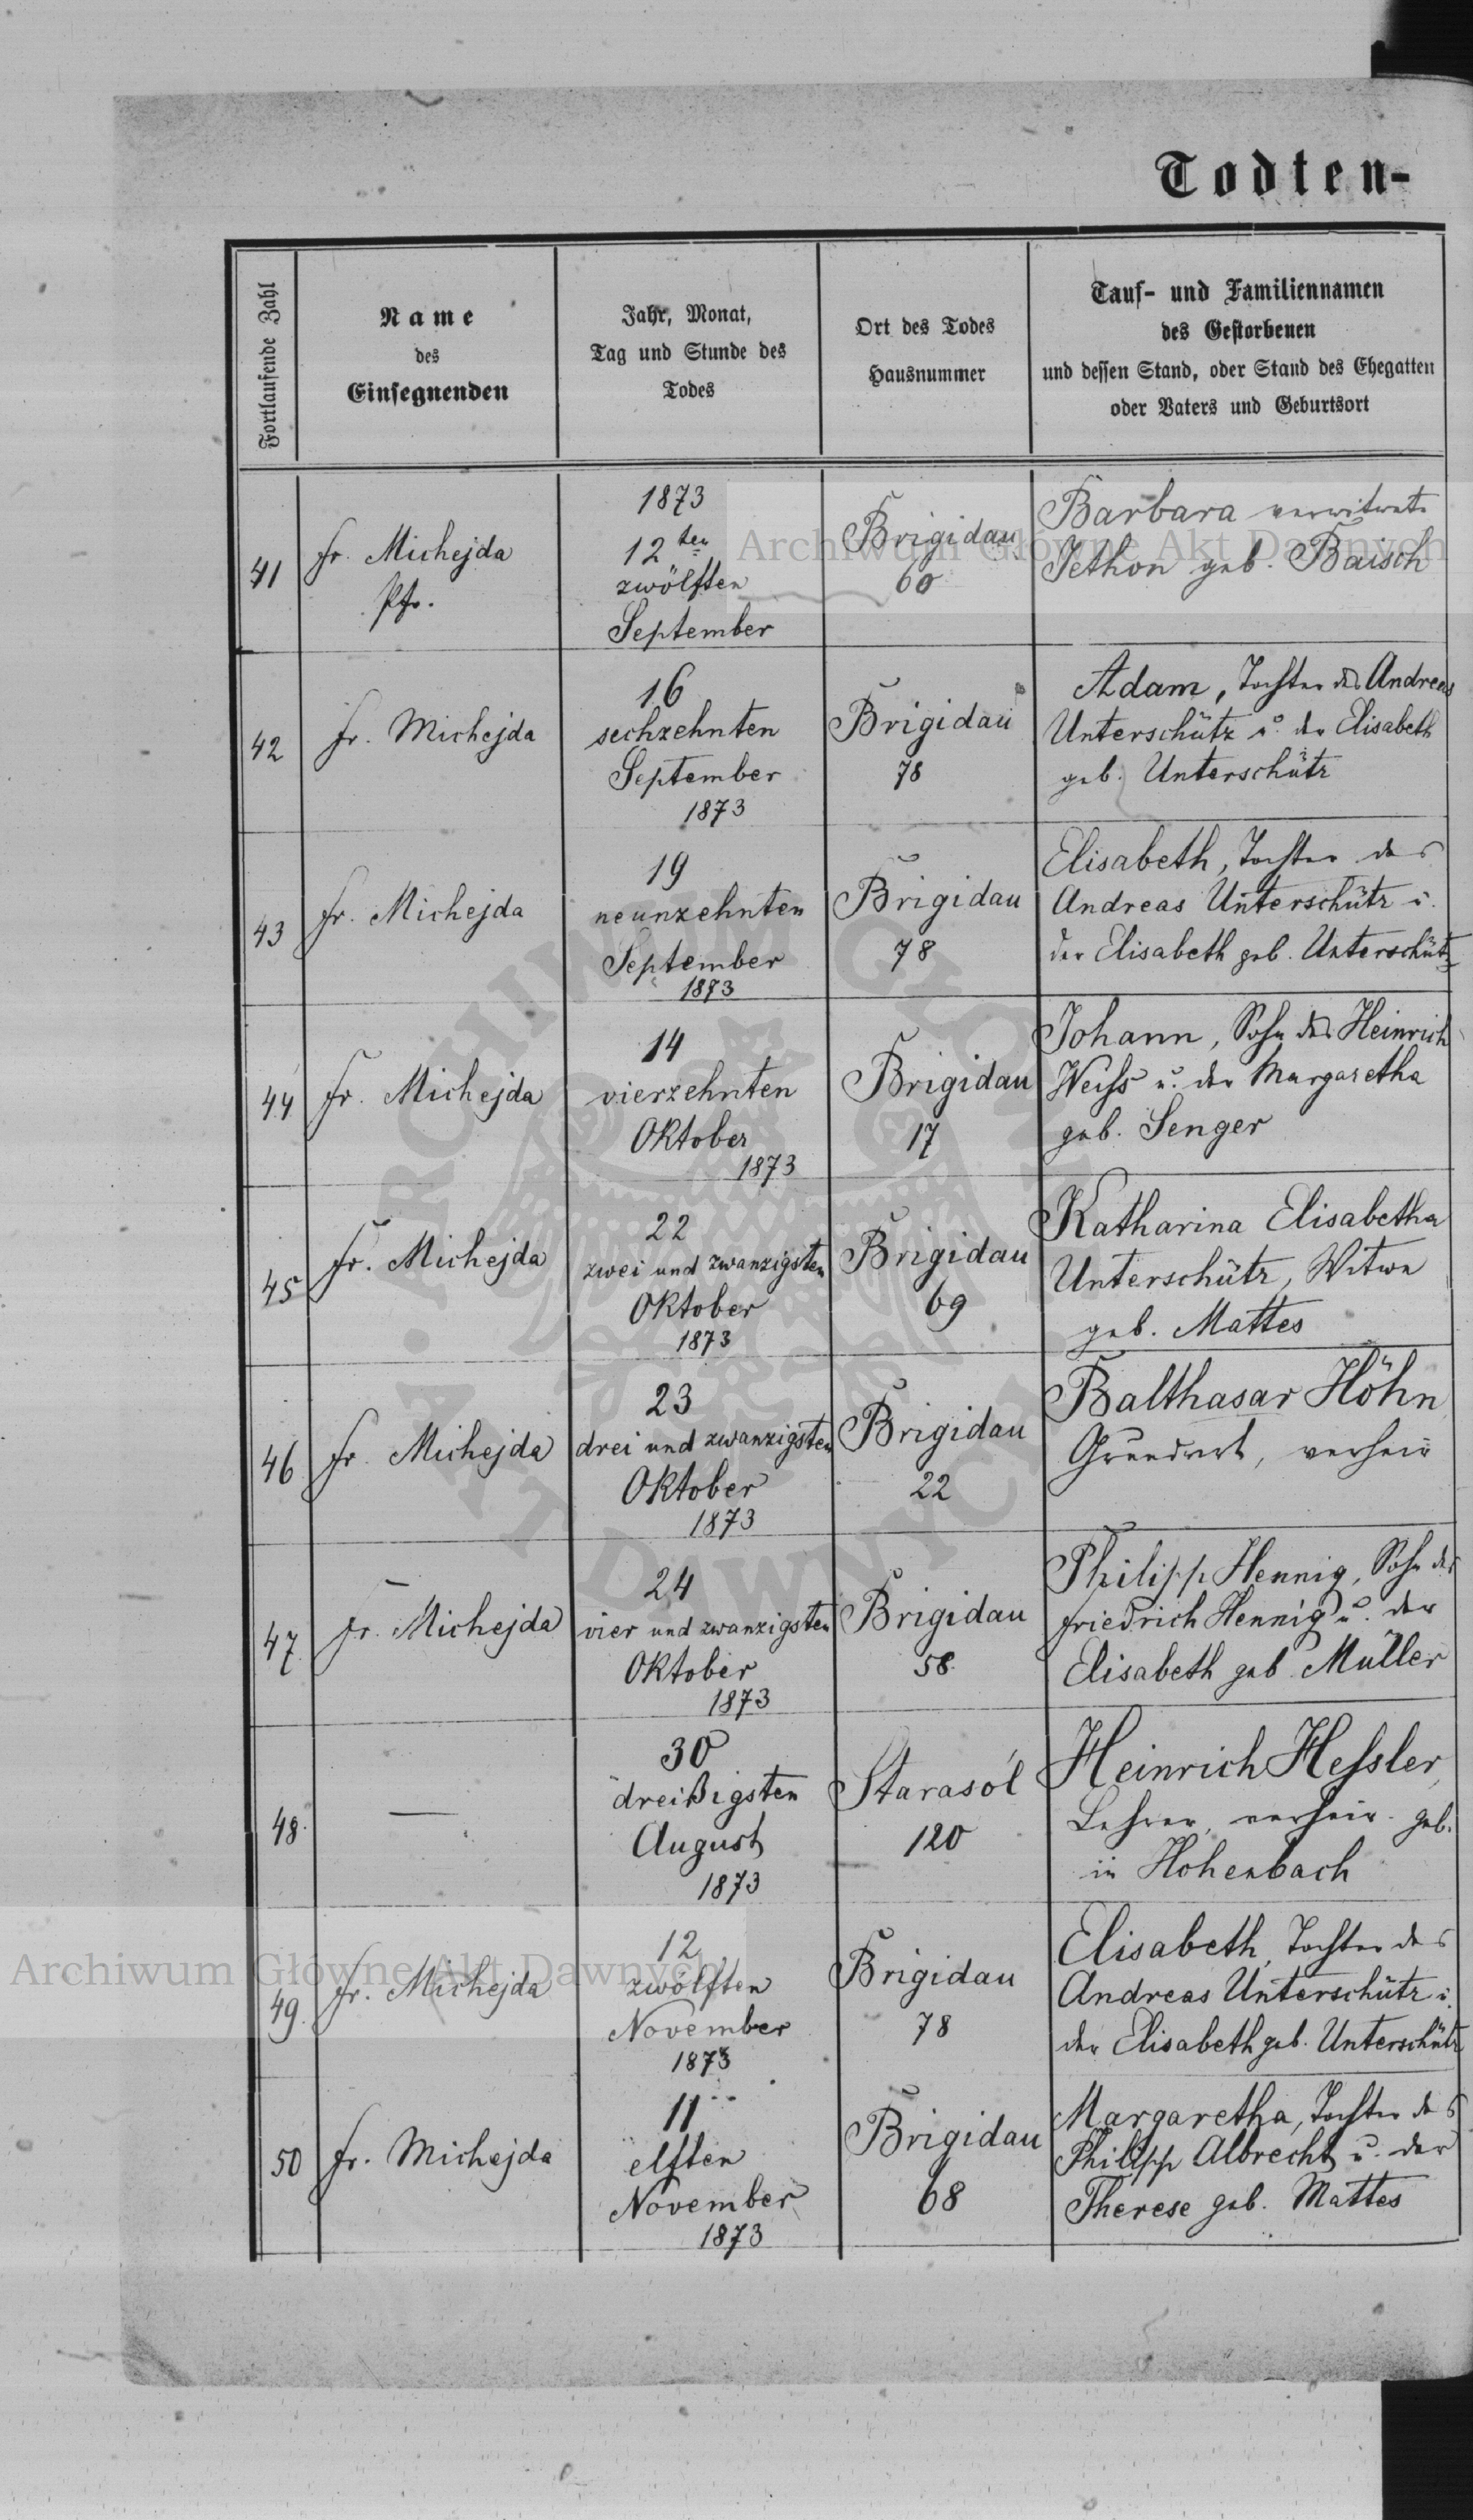 Todten-
Fortlaufende Zahl
Name
des
Einsegnenden
Jahr, Monat,
Tag und Stunde des
Todes
Ort des Todes
Hausnummer
Tauf- und Familiennamen
des Gestorbenen
und dessen Stand, oder Stand des Ehegatten
oder Vaters und Geburtsort
41
Fr. Michejda
Pfr.
1873
12ten
zwölften
September
Brigidau
60
Barbara verwitwete
Jethon geb. Baisch
42
Fr. Michejda
16
sechzehnten
September
1873
Brigidau
78
Adam, Tochter des Andreas
Unterschütz u. der Elisabeth
geb. Unterschütz
43
Fr. Michejda
19
neunzehnten
September
1873
Brigidau
78
Elisabeth, Tochter des
Andreas Unterschütz u.
der Elisabeth geb. Unterschütz
44
Fr. Michejda
14
vierzehnten
Oktober
1873
Brigidau
17
Johann, Sohn des Heinrich
Weiss u. der Margaretha
geb. Senger
45
Fr. Michejda
22
zwei und zwanzigsten
Oktober
1873
Brigidau
69
Katharina Elisabetha
Unterschütz, Witwe
geb. Mattes
46
Fr. Michejda
23
drei und zwanzigsten
Oktober
1873
Brigidau
22
Balthasar Höhn
Grundwt, verheir
47
Fr. Michejda
24
vier und zwanzigsten
Oktober
1873
Brigidau
58
Philipp Hennig, Sohn des
Friedrich Hennig u. der
Elisabeth geb Müller
48.
—
30
dreißigsten
August
1873
Starasól
120
Heinrich Hessler,
Lehrer, verheir. geb.
in Hohenbach
49.
Fr. Michejda
12
zwölften
November
1873
Brigidau
78
Elisabeth, Tochter des
Andreas Unterschütz u.
der Elisabeth geb. Unterschütz
50
Fr. Michejda
11
elften
November
1873
Brigidau
68
Margaretha, Tochter des
Philipp Albrecht u. der
Therese geb. Mattes
Archiwum Główne Akt Dawnych
Archiwum Główne Akt Dawnych
ARCHIWUM GŁÓWNE
AKT DAWNYCH